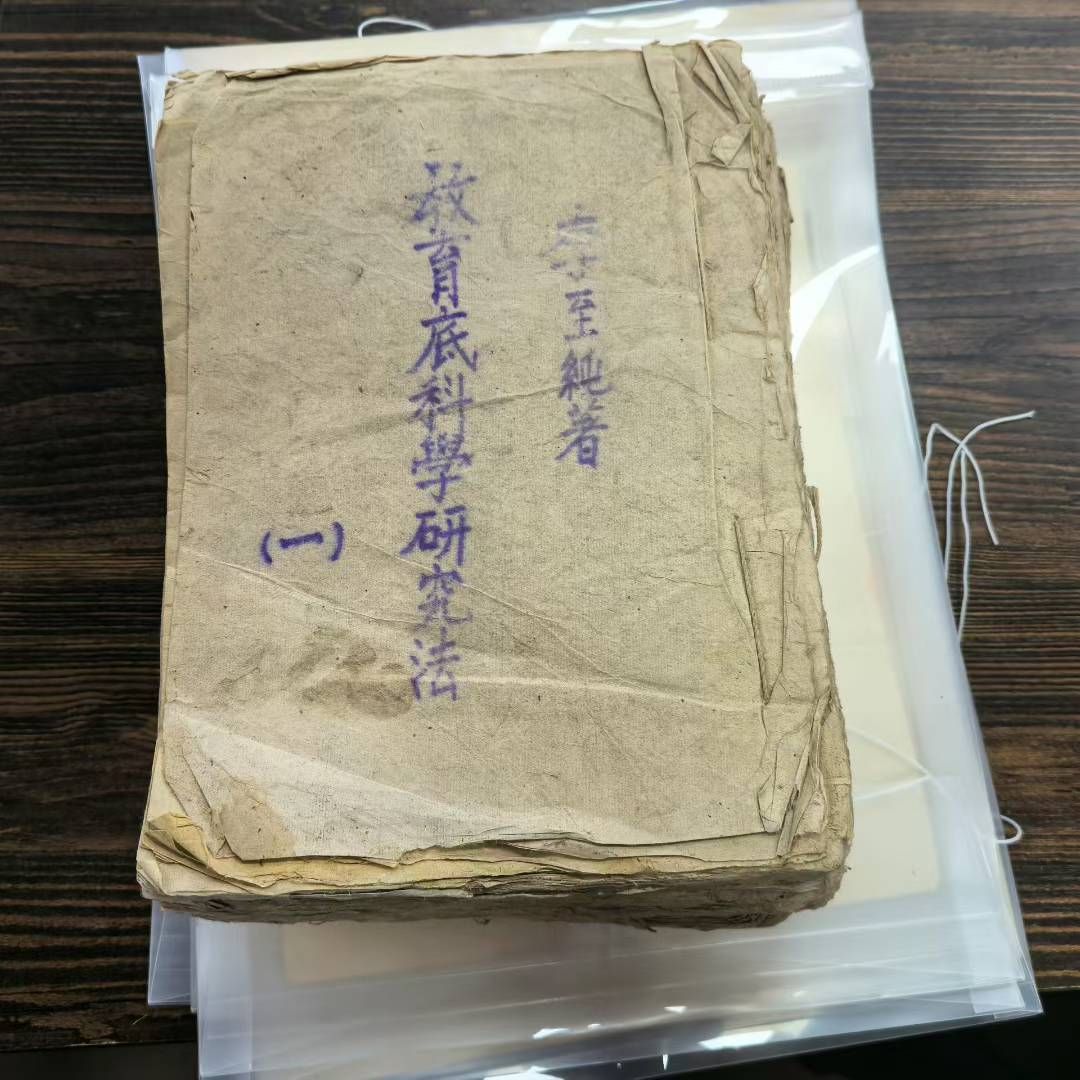 李至純著
教育底科學研究法
(一)